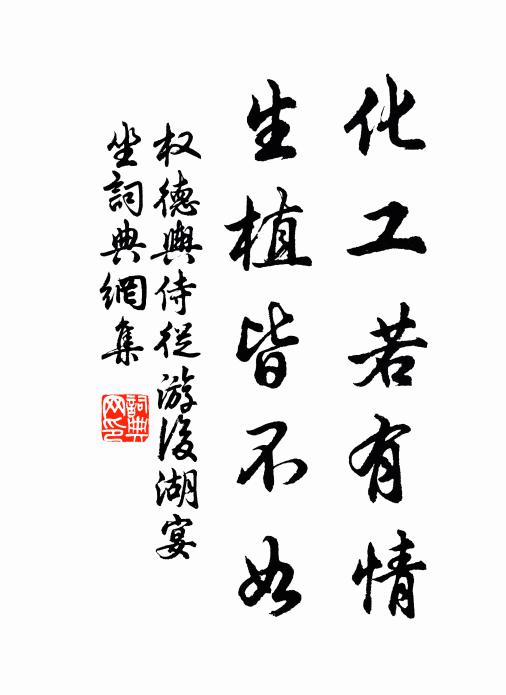 化工若有情
生植皆不如
权德舆侍从游後湖宴
坐詞典網集
詞典网印